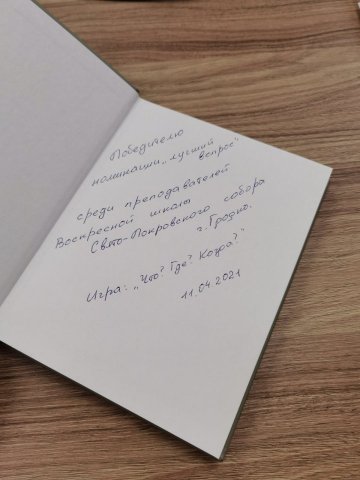 Победителю
номинации „лучший
вопрос"
среди преподавателей
Воскресной школы
Свято-Покровского собора
г. Гродно.
Игра: „Что? Где? Когда?"
11.04.2021